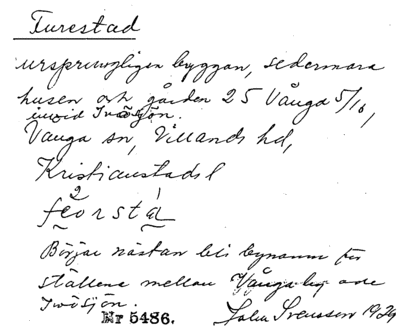 Furestad
ursprungligen byggan, sedermera
husen och gården 25 Vånga 5/16,
invid Ivösjön.
Vånga sn, Villands hd,
Kristianstads l
2 1
feorstá
Börjar nästan bli bynamn för
ställena mellan Vånga by och
Ivösjön.
Nr 5486.
Svensson 1929